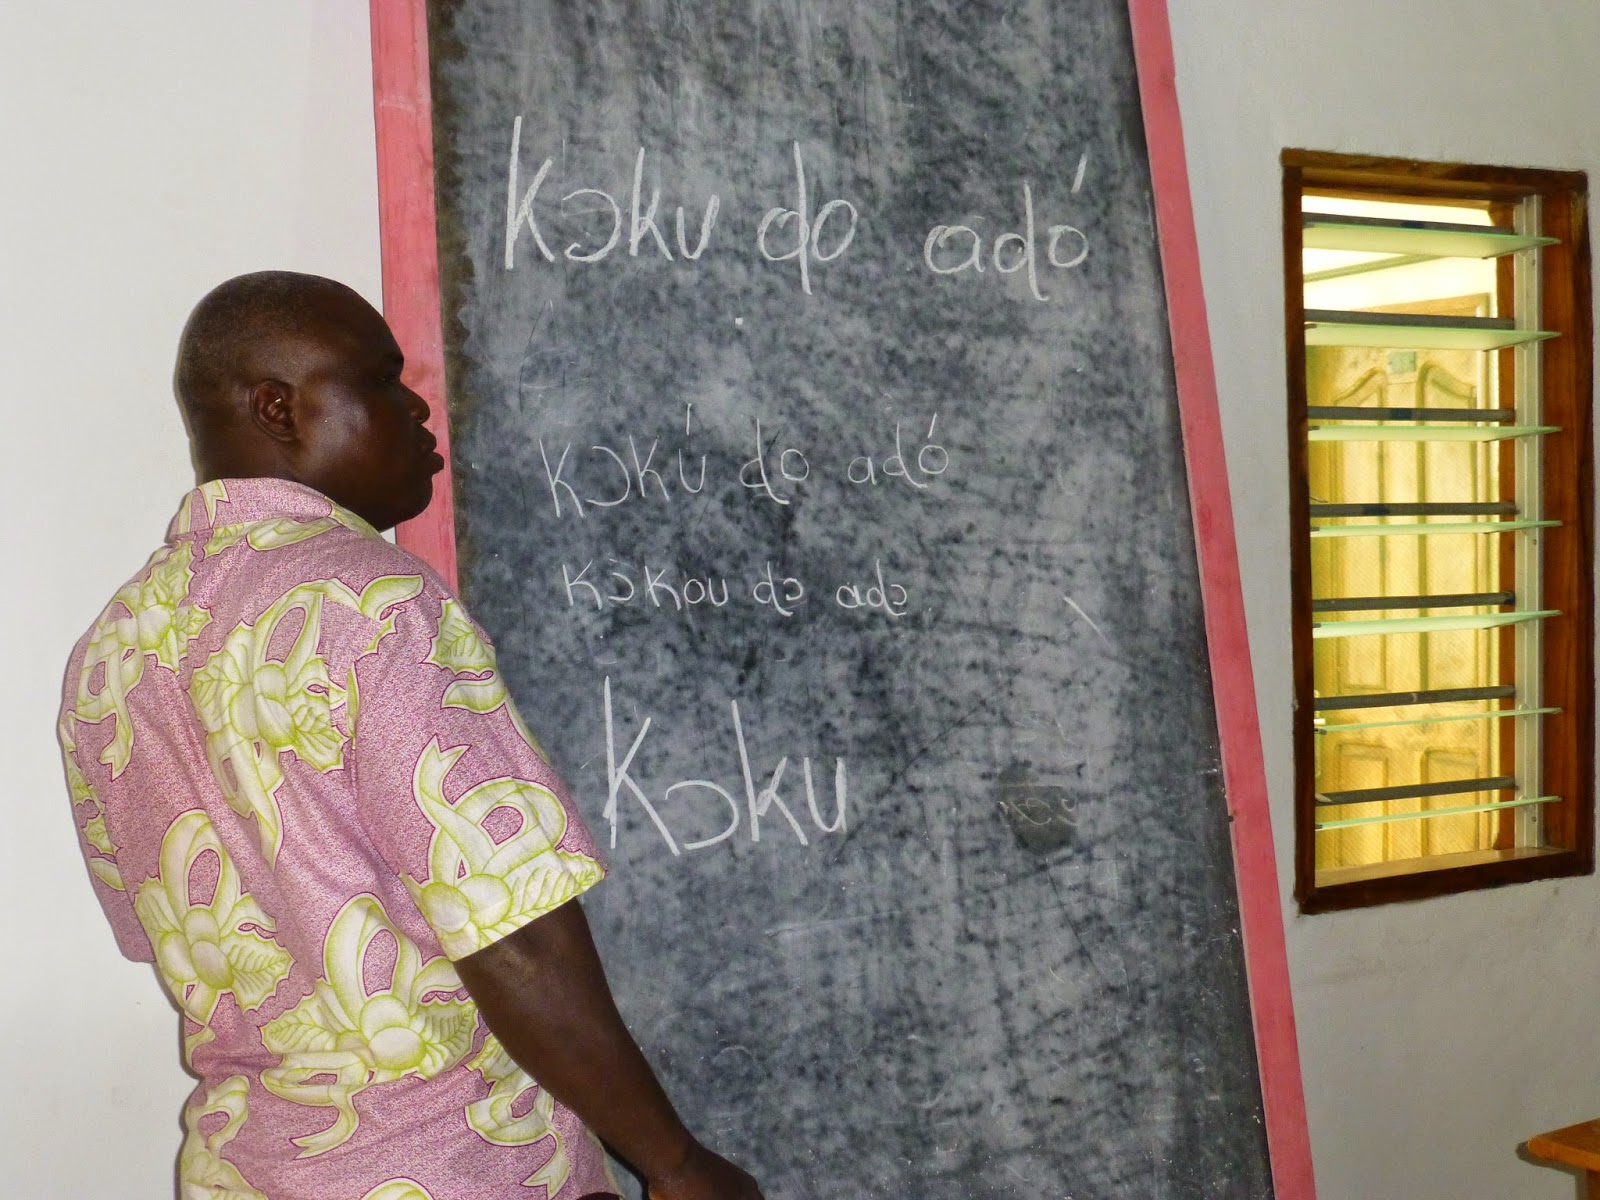 Kɔku ɖo adó
kɔkú ɖo adó
kɔkou dɔ adɔ
Kɔku